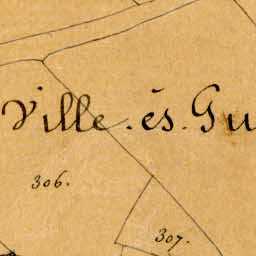 Ville. és. Gu
306.
307.